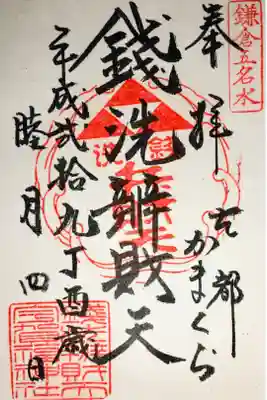 鎌倉五名水
奉拝
古都
かまくら
銭洗辨財天
平成弐拾九丁酉歳
睦月四日